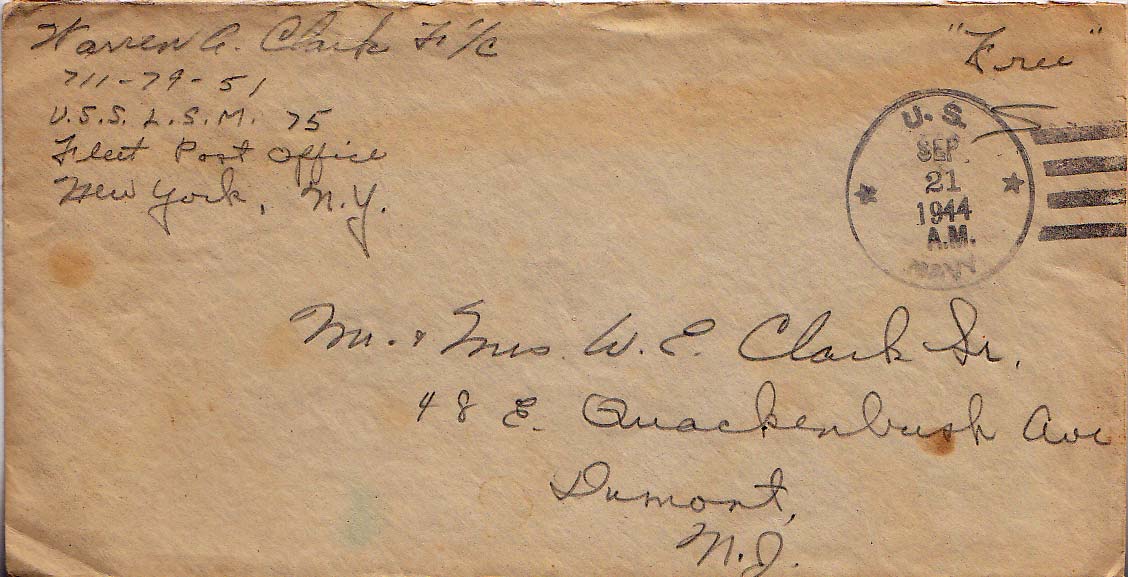 Warren A. Clark F 1/C
711-79-51
U.S.S. L.S.M. 75
Fleet Post Office
New York, N.Y.
"Free"
U.S.
SEP
21
1944
A.M.
NAVY
Mr. & Mrs. W. E. Clark Sr.
48 E. Quackenbush Ave
Dumont,
N.J.